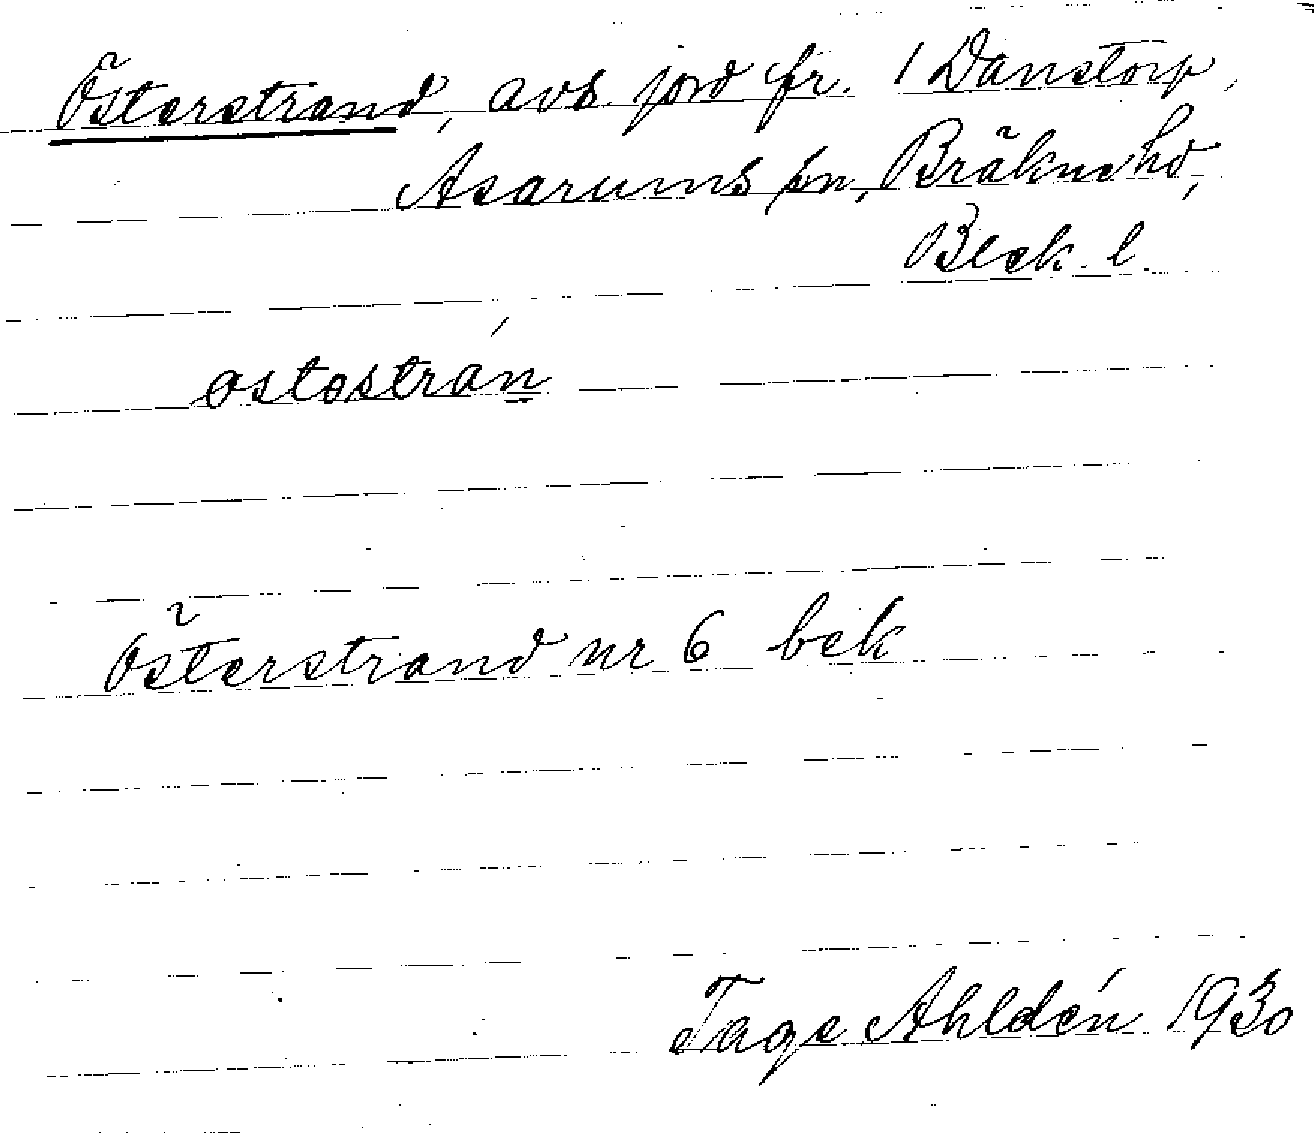 Österstrand, avs. jord fr. 1 Danstorp,
Asarums sn, Bräkne hd,
Blek. l.
östöstrán
Österstrand nr 6 bek
Tage Ahldén 1930